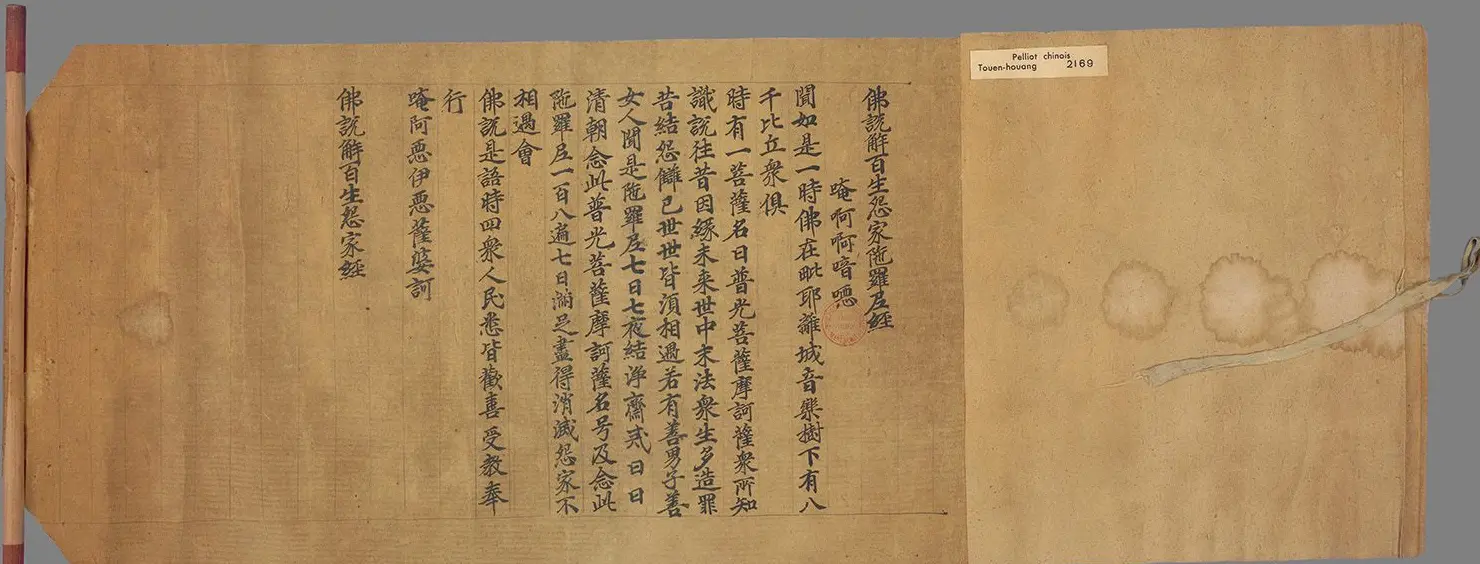 Pelliot chinois
Touen-houang 2169
佛說解百生怨家陁羅尼經
唵阿阿喑𠷐
聞如是一時佛在毗耶離城音樂樹下有八
千比丘衆俱
時有一菩薩名曰普光菩薩摩訶薩衆所知
識說往昔因緣未來世中末法衆生多造罪
苦結怨讎已世世皆須相遇若有善男子善
女人聞是陁羅尼七日七夜結淨齋戒日日
清朝念此普光菩薩摩訶薩名号及念此
陁羅尼一百八遍七日滿足盡得消滅怨家不
相遇會
佛說是語時四衆人民悉皆歡喜受教奉
行
唵阿悪伊悪薩婆訶
佛說解百生怨家經